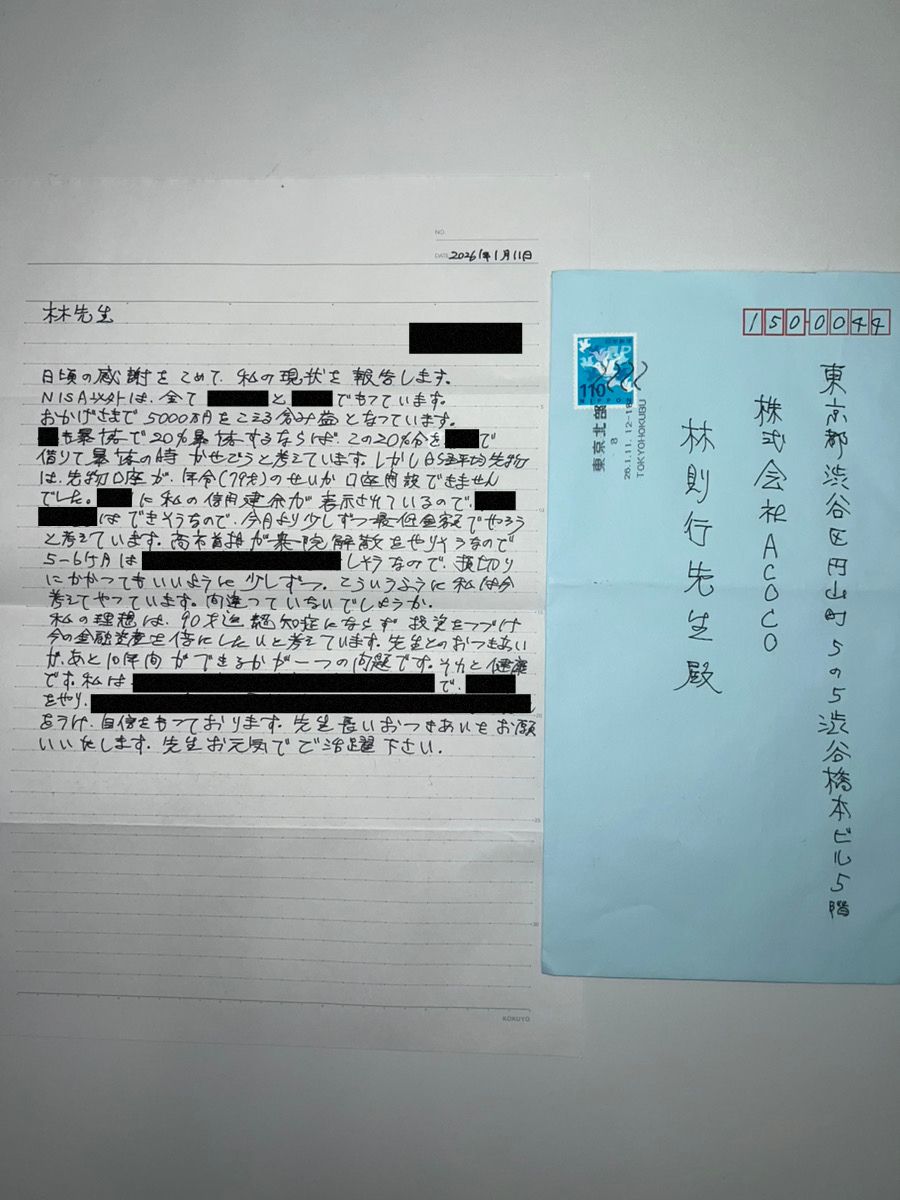 NO.
DATE 2026年1月11日
林先生
日頃の感謝をこめて、私の現状を報告します。
NISA以外は、全て と でもっています。
おかげさまで5000万円をこえる含み益となっています。
も暴落で20%暴落するならば、この20%分を で
借りて暴落の時かせごうと考えています。しかし 平均先物
は、先物口座が、年令(79才)のせいか口座開設できません
でした。 に私の信用建余力が表示されているので、
はできそうなので、今月より少しずつ最低金額でやろう
と考えています。高市首相が衆院解散をやりそうなので
5-6ヶ月は しそうなので、損切り
にかかってもいいように少しずつ。こういうふうに私は今
考えてやっています。間違っていないでしょうか。
私の理想は、90才迄認知症にならず投資をつづけ
今の金融資産を倍にしたいと考えています。先生とのおつきあい
が、あと10年間ができるかが一つの問題です。それと健康
です。私は で、
をやり、
をうけ、自信をもっております。先生長いおつきあいをお願
いいたします。先生お元気でご活躍下さい。
5
10
15
20
25
30
KOKUYO
1500044
東京都渋谷区円山町5の5渋谷橋本ビル5階
株式会社ACOCO
林則行先生殿
日本郵便
110
NIPPON
東京北部
26.1.11.12-18
TOKYOHOKUBU